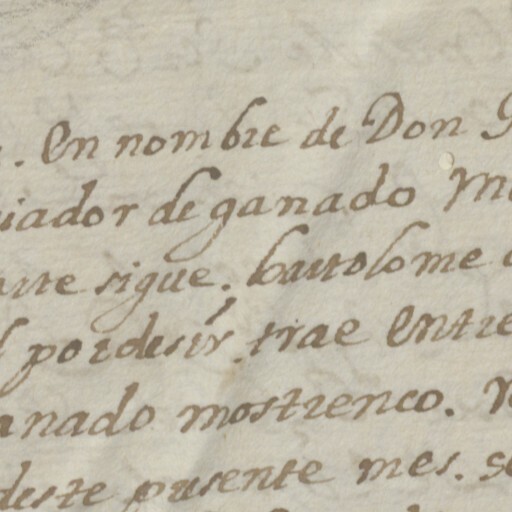 . En nombre de Don
iador de ganado
arte sigue. bartolome
por desir, trae Entre
anado mostrenco.
deste presente mes. se